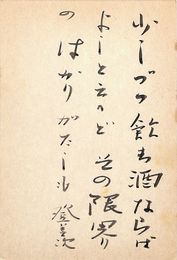 少しづつ飲む酒ならば
よしと云へど その限界
のはかりがたしも